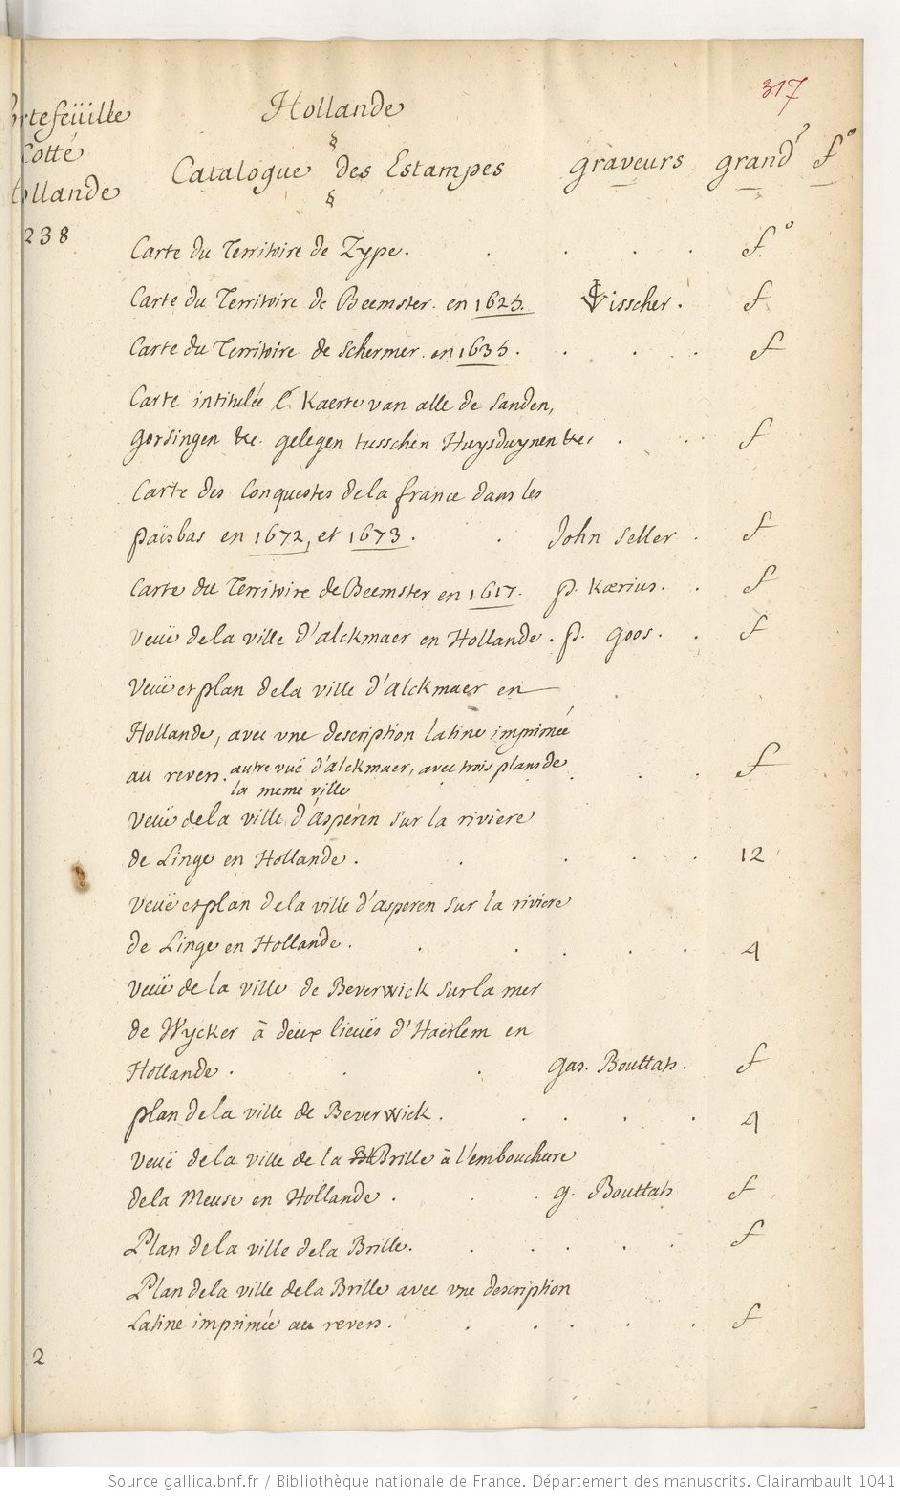 317
Hollande
portefeüille
Cotté
Hollande
238
§
Catalogue des Estampes graveurs grandr fo
§
Carte du Territoire de Zype. fo
Carte du Territoire de Beemster. en 1625. Visscher. f
Carte du Territoire de Schermer. en 1635. f
Carte intitulée Kaerte van alle de Sanden,
Gordingen &c. gelegen tusschen Huysduynen &c. f
Carte des Conquestes de la france dans les
païsbas en 1672, et 1673. John Seller. f
Carte du Territoire de Beemster en 1617. p. Kærius. f
Veuë de la ville d'alckmaer en Hollande. p. goos. f
Veuë et plan de la ville d'alckmaer en
Hollande, avec vne description latine imprimée
au revers. autre vuë d'alckmaer, avec trois plans de f
la meme ville
Veuë de la ville d'asperen sur la riviere
de Linge en Hollande. 12
Veuë et plan de la ville d'asperen sur la riviere
de Linge en Hollande. 4
Veuë de la ville de Beverwick sur la mer
de Wycker à deux lieuës d'Haerlem en
Hollande. gas. Bouttats f
plan de la ville de Beverwick. 4
Veuë de la ville de la Brille à l'embouchure
de la Meuse en Hollande. g. Bouttats f
Plan de la ville de la Brille. f
Plan de la ville de la Brille avec vne description
Latine imprimée au revers. f
2
Source gallica.bnf.fr / Bibliothèque nationale de France. Département des manuscrits. Clairambault 1041